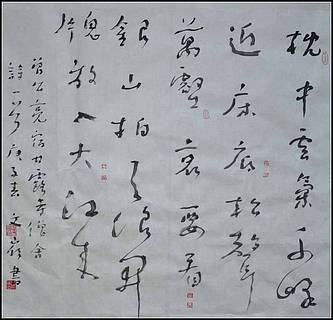 枕中雲氣千峰
近床底松聲
萬壑哀要看
銀山拍天浪開
窗放入大江来
曾公亮宿甘露寺僧舍
詩一首庚子春文書